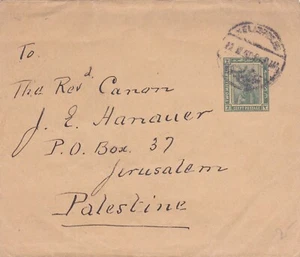 HELIOPOLIS
To.
The Revd. Canon
J. E. Hanauer
P.O. Box 37
Jerusalem
Palestine